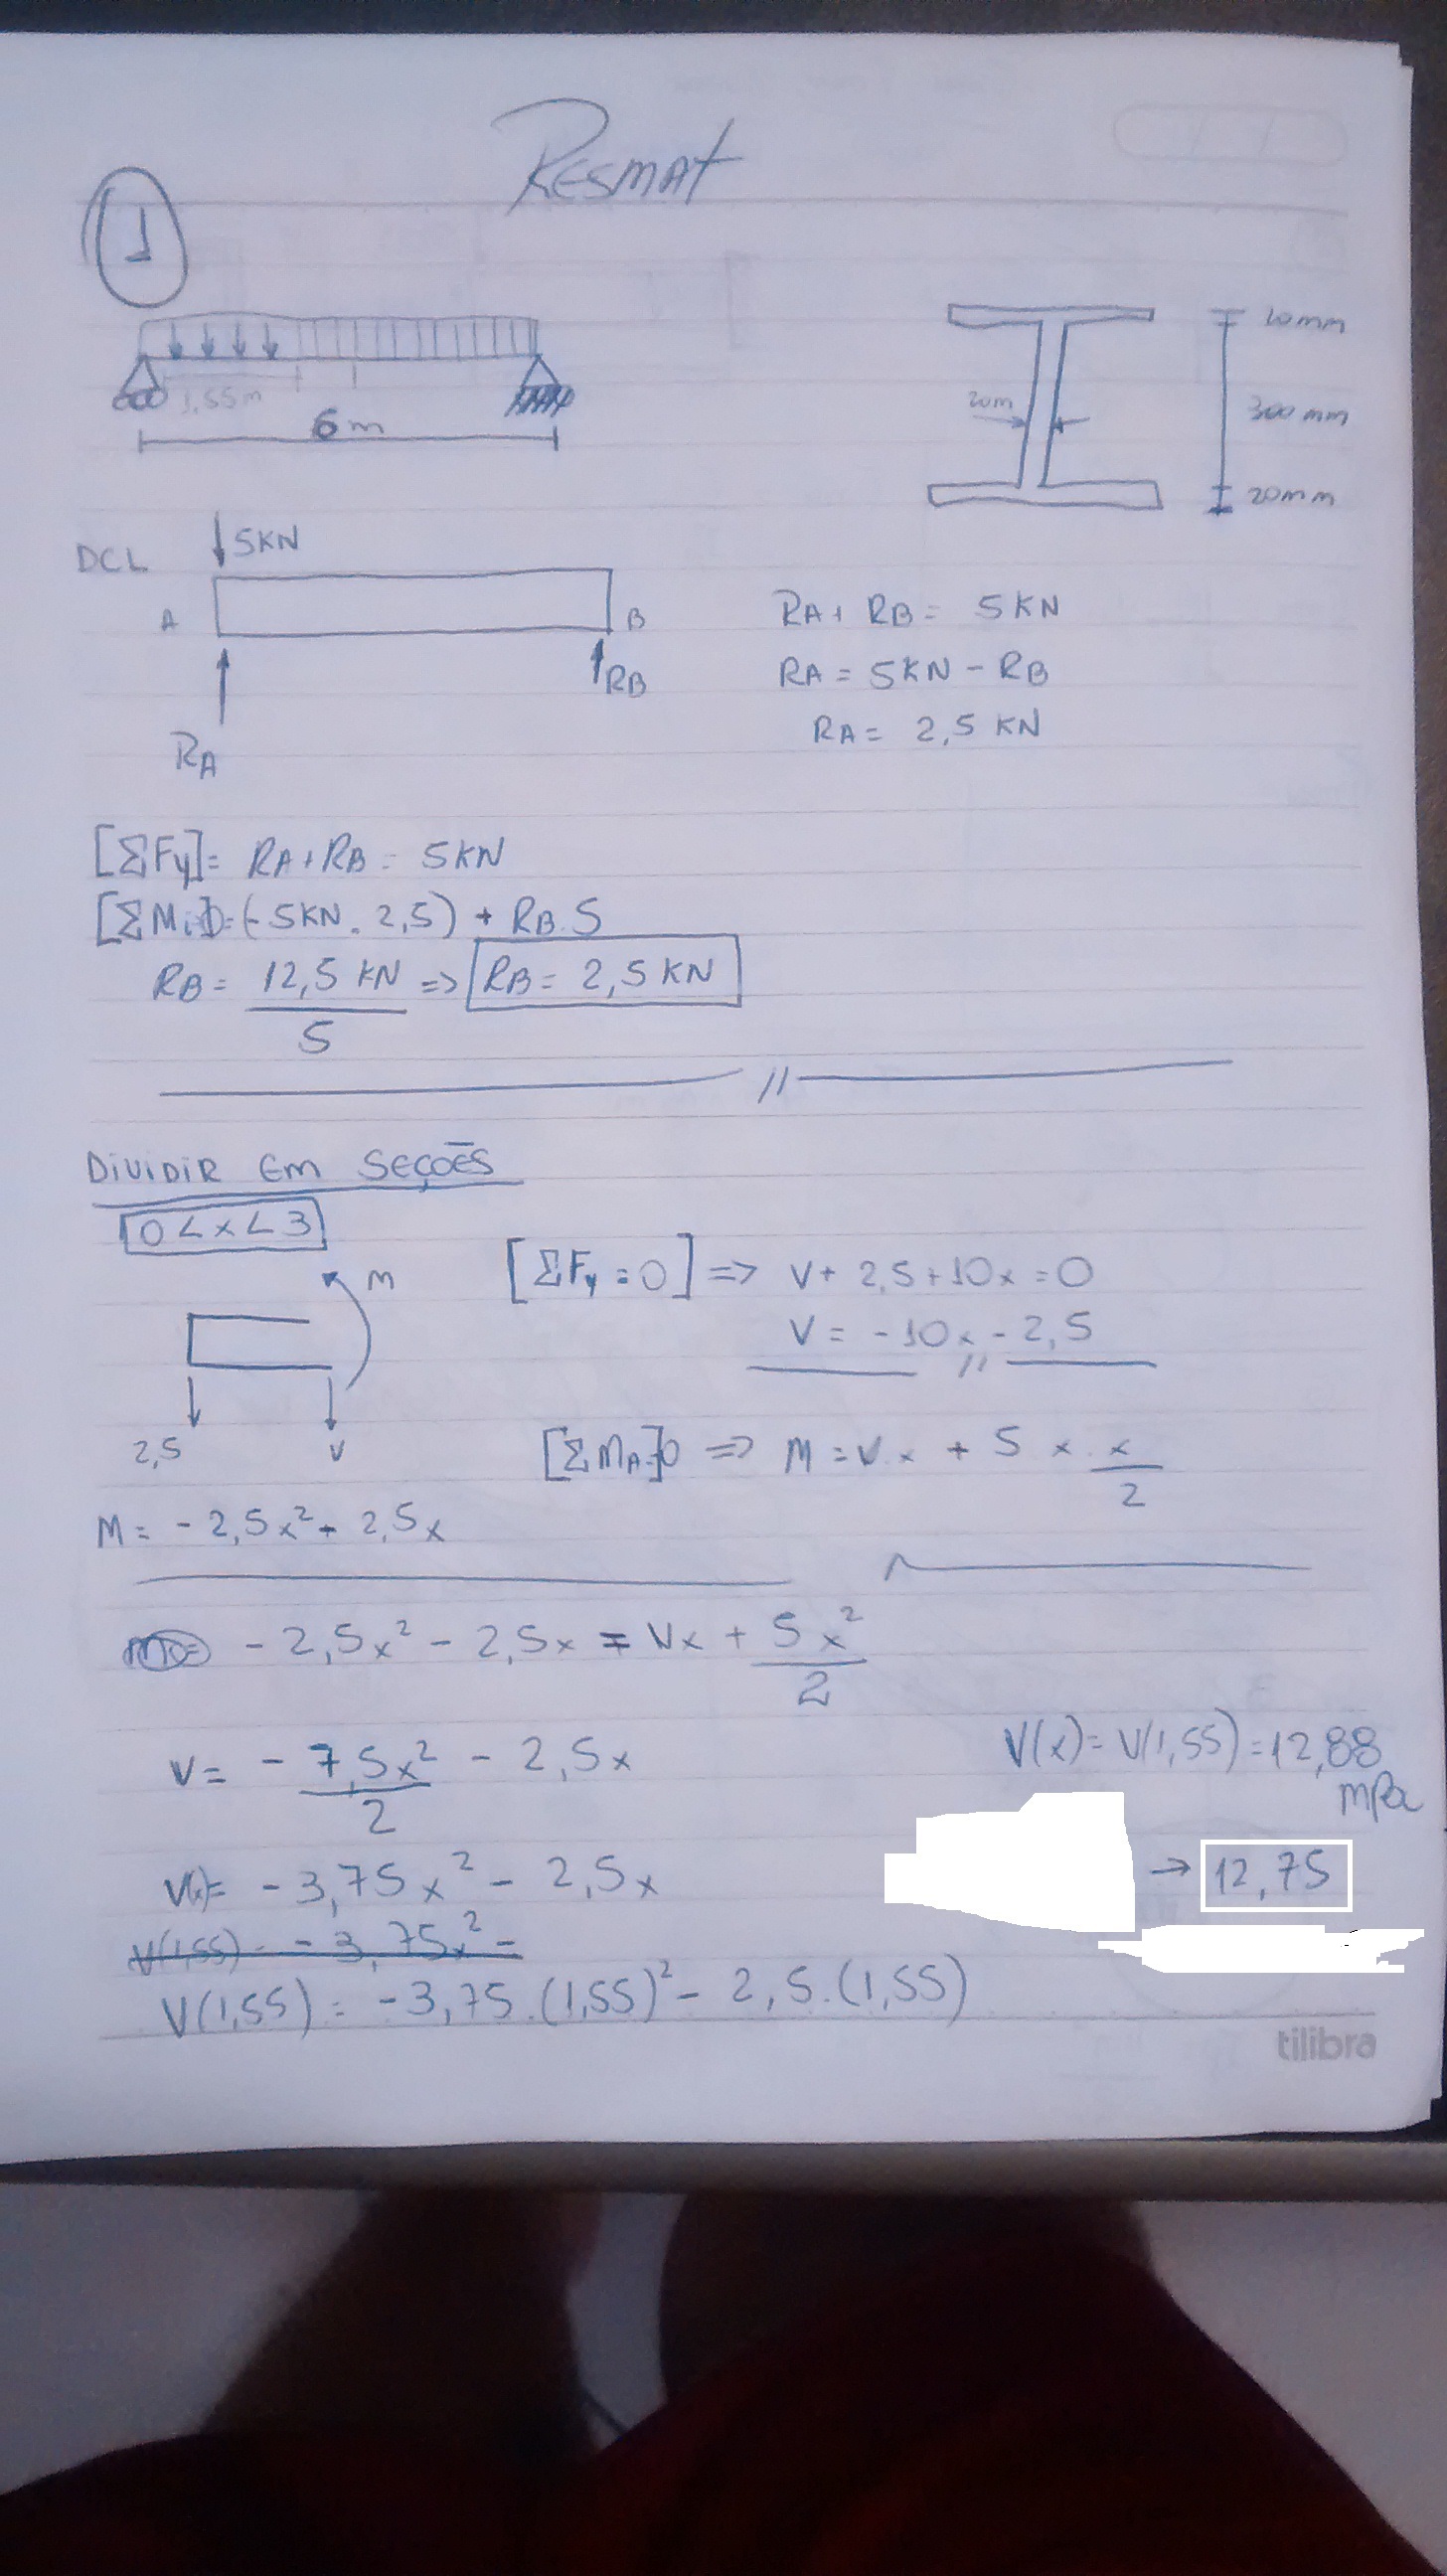 RESMAT
1
10mm
300 mm
20m
20mm
1,55m
6m
DCL
5KN
A
B
RA
RB
RA + RB = 5 KN
RA = 5KN - RB
RA = 2,5 KN
[ΣFy]= RA + RB = 5KN
= (-5KN . 2,5) + RB.5
RB = 12,5 KN / 5 => RB = 2,5 KN
//
DiViDiR Em SEÇÕES
0 < x < 3
M
2,5
V
[ΣFy = 0] => V + 2,5 + 10x = 0
V = -10x - 2,5
//
[ΣMA]=0 => M = V.x + 5 x . x/2
M = -2,5x² + 2,5x
-2,5x² - 2,5x = Vx + 5x²/2
V = - 7,5x²/2 - 2,5x
V(x) = V(1,55) = 12,88 mPa
V(x)= -3,75x² - 2,5x
→ 12,75
V(1,55) = -3,75x² -
V(1,55) = -3,75.(1,55)² - 2,5.(1,55)
tilibra